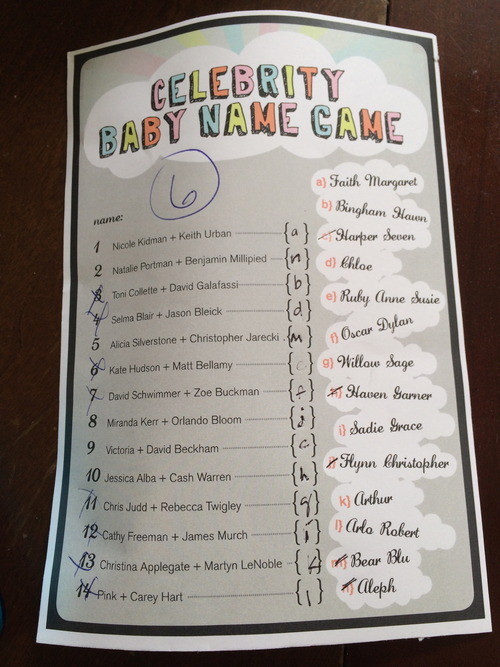 CELEBRITY
BABY NAME GAME
6
name:
1 Nicole Kidman + Keith Urban {a}
2 Natalie Portman + Benjamin Millipied {n}
3 Toni Collette + David Galafassi {b}
4 Selma Blair + Jason Bleick {d}
5 Alicia Silverstone + Christopher Jarecki {m}
6 Kate Hudson + Matt Bellamy { }
7 David Schwimmer + Zoe Buckman { }
8 Miranda Kerr + Orlando Bloom {j}
9 Victoria + David Beckham {c}
10 Jessica Alba + Cash Warren {h}
11 Chris Judd + Rebecca Twigley { }
12 Cathy Freeman + James Murch {i}
13 Christina Applegate + Martyn LeNoble { }
14 Pink + Carey Hart { }
a) Faith Margaret
b) Bingham Hawn
c) Harper Seven
d) Chloe
e) Ruby Anne Susie
f) Oscar Dylan
g) Willow Sage
h) Haven Garner
i) Sadie Grace
j) Flynn Christopher
k) Arthur
l) Arlo Robert
m) Bear Blu
n) Aleph